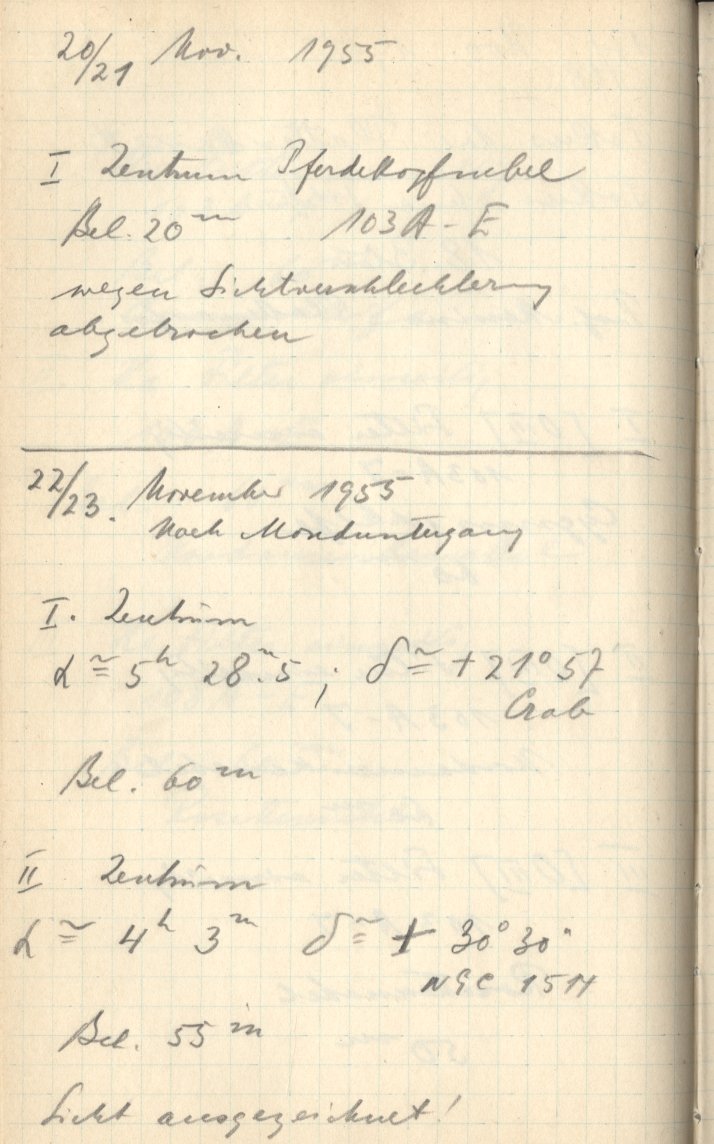 20/21 Nov. 1955
I Zentrum Pferdekopfnebel
Bel. 20ᵐ 103A-E
wegen Sichtverschlechterung
abgebrochen
22/23. November 1955
Nach Monduntergang
I. Zentrum
α ≅ 5ʰ 28ᵐ.5 ; δ ≅ +21°57'
Crab
Bel. 60ᵐ
II Zentrum
α ≅ 4ʰ 3ᵐ δ ≅ + 30°30'
NGC
Bel. 55ᵐ
Sicht ausgezeichnet!